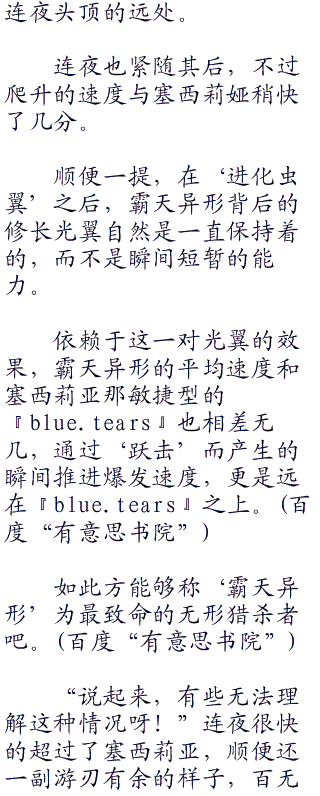 连夜头顶的远处。
连夜也紧随其后，不过
爬升的速度与塞西莉娅稍快
了几分。
顺便一提，在‘进化虫
翼’之后，霸天异形背后的
修长光翼自然是一直保持着
的，而不是瞬间短暂的能
力。
依赖于这一对光翼的效
果，霸天异形的平均速度和
塞西莉亚那敏捷型的
『blue.tears』也相差无
几，通过‘跃击’而产生的
瞬间推进爆发速度，更是远
在『blue.tears』之上。(百
度“有意思书院”)
如此方能够称‘霸天异
形’为最致命的无形猎杀者
吧。(百度“有意思书院”)
“说起来，有些无法理
解这种情况呀！”连夜很快
的超过了塞西莉亚，顺便还
一副游刃有余的样子，百无